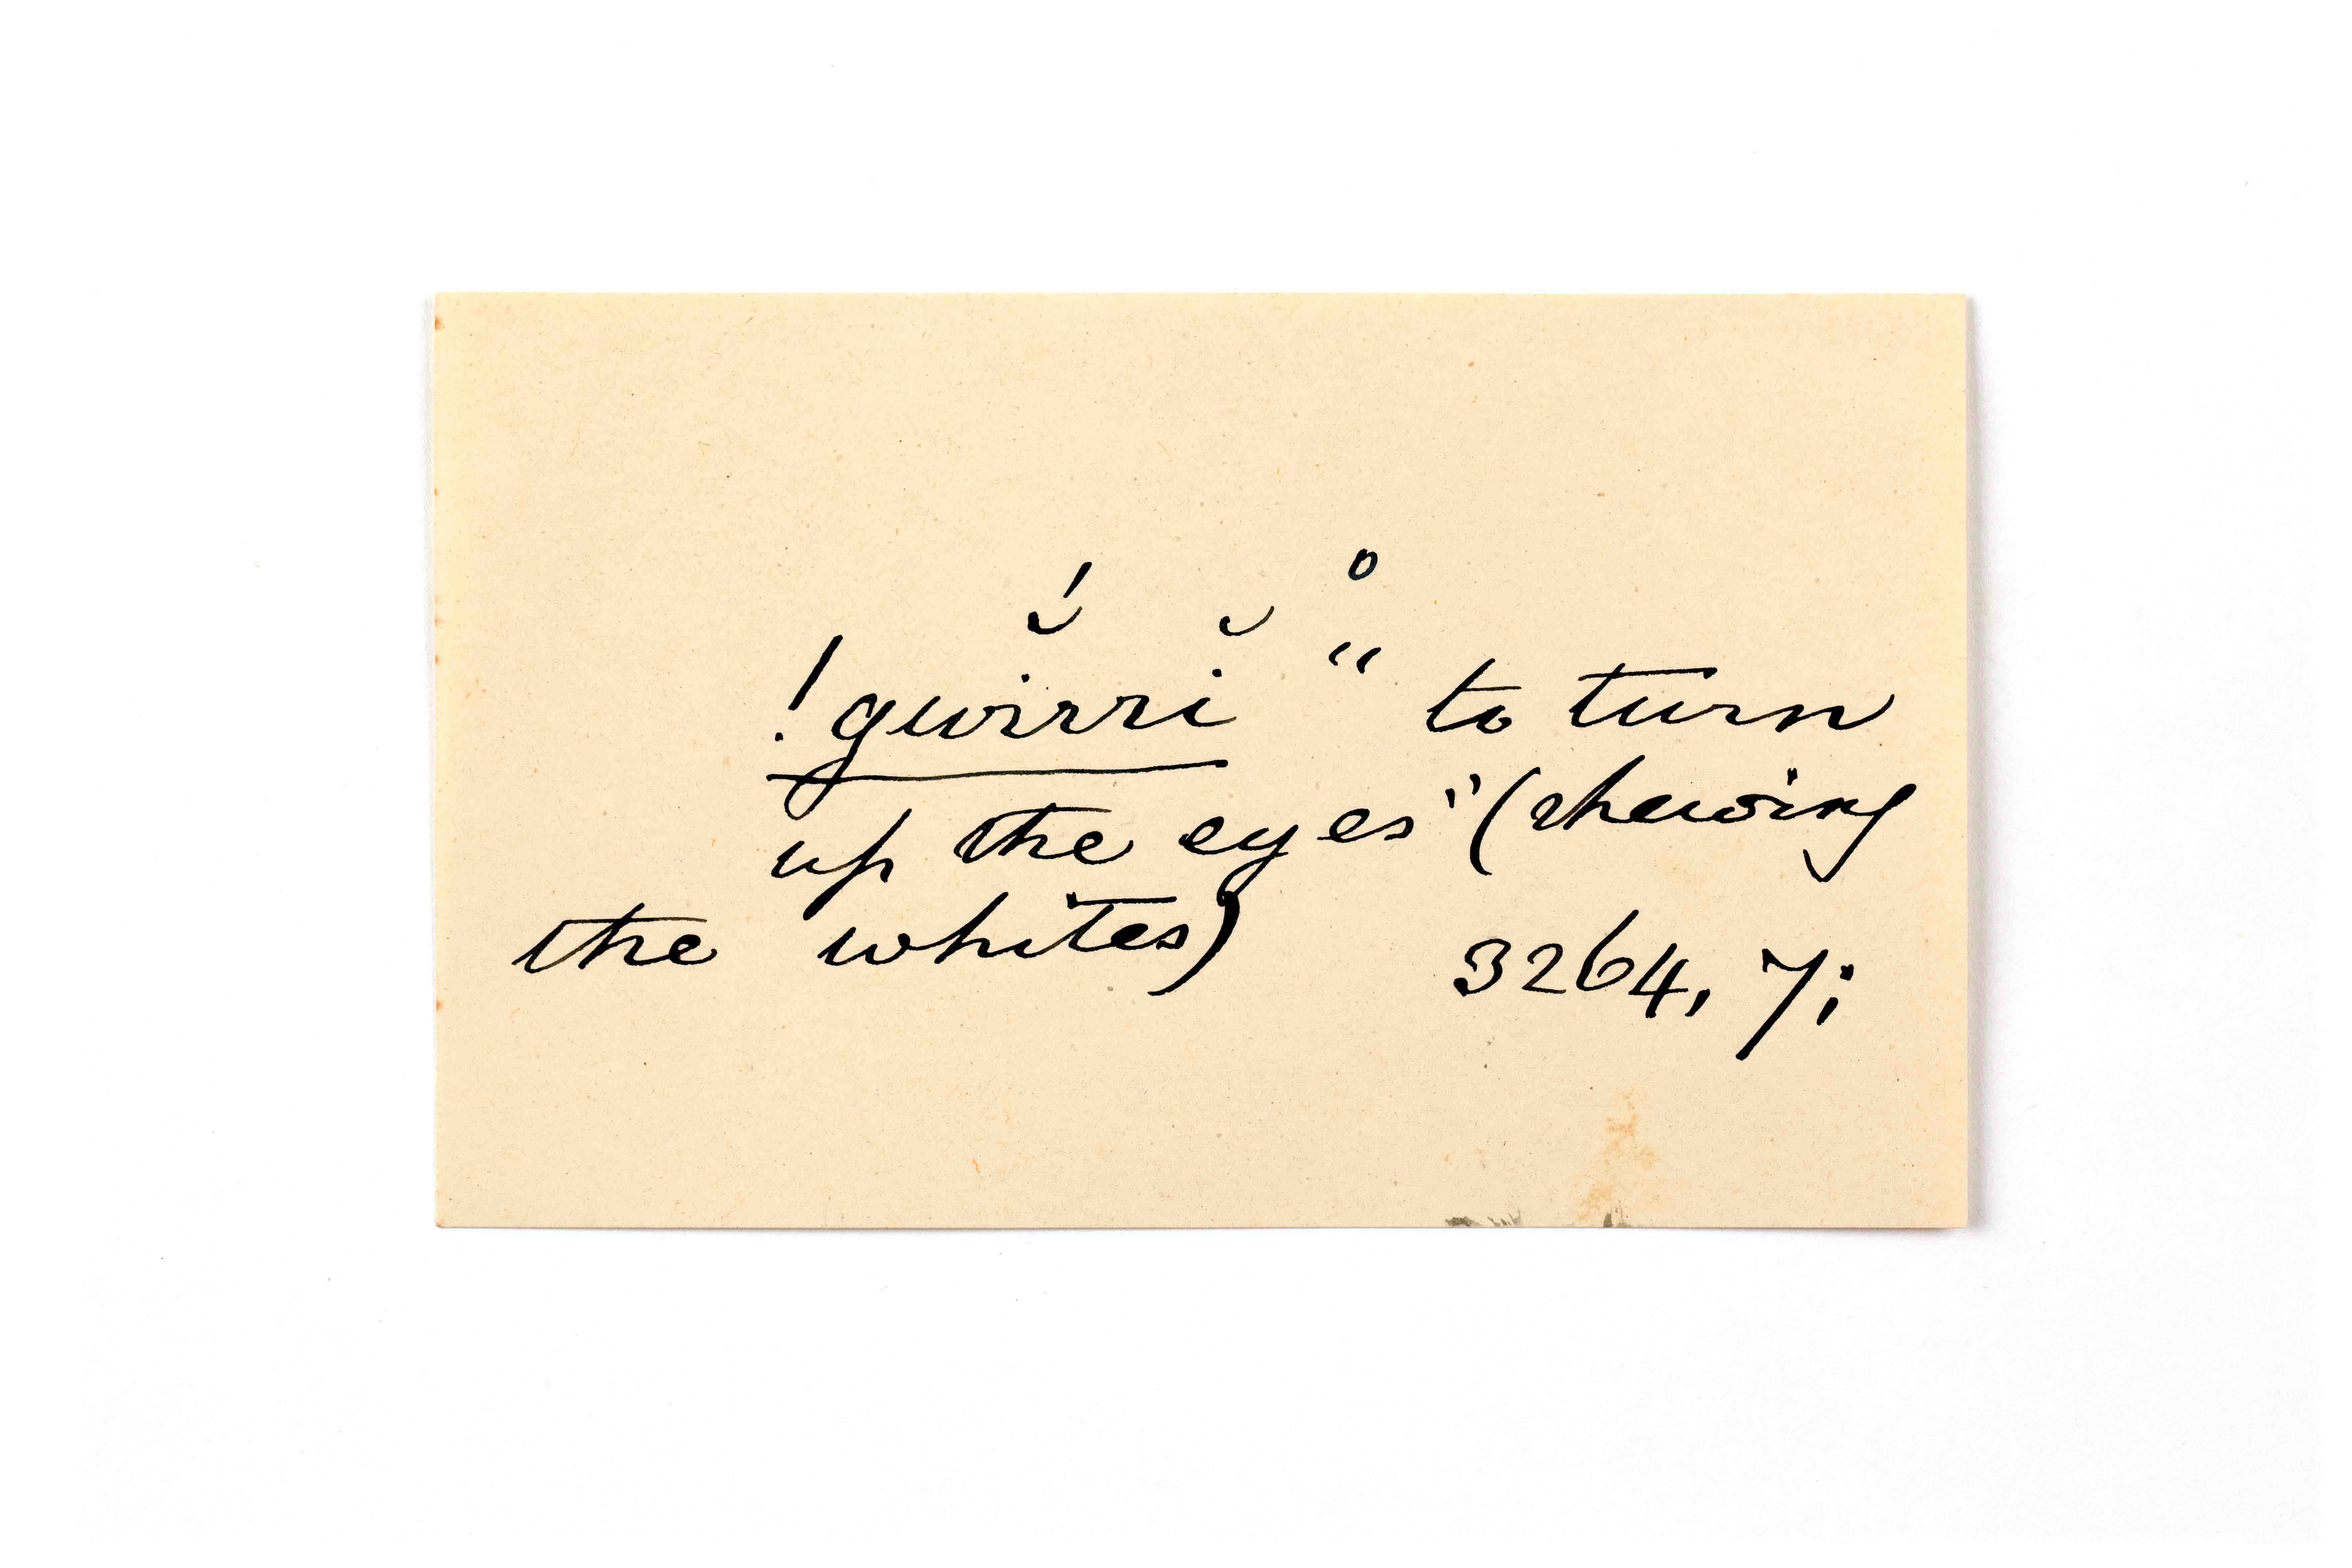 !gwĭ́rrĭ ° “ to turn
up the eyes” (shewing
the whites) 3264, 7;